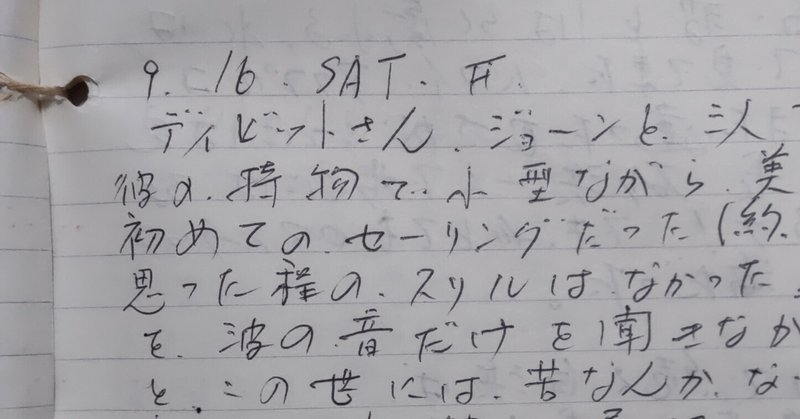 9. 16. SAT. F.
デイビットさん、ジョーンと、三人
彼の、持物で、小型ながら、美
初めての、セーリングだった(約、
思った程の、スリルは、なかった
を、波の音だけを聞きなが
と、この世には、苦なんか、な